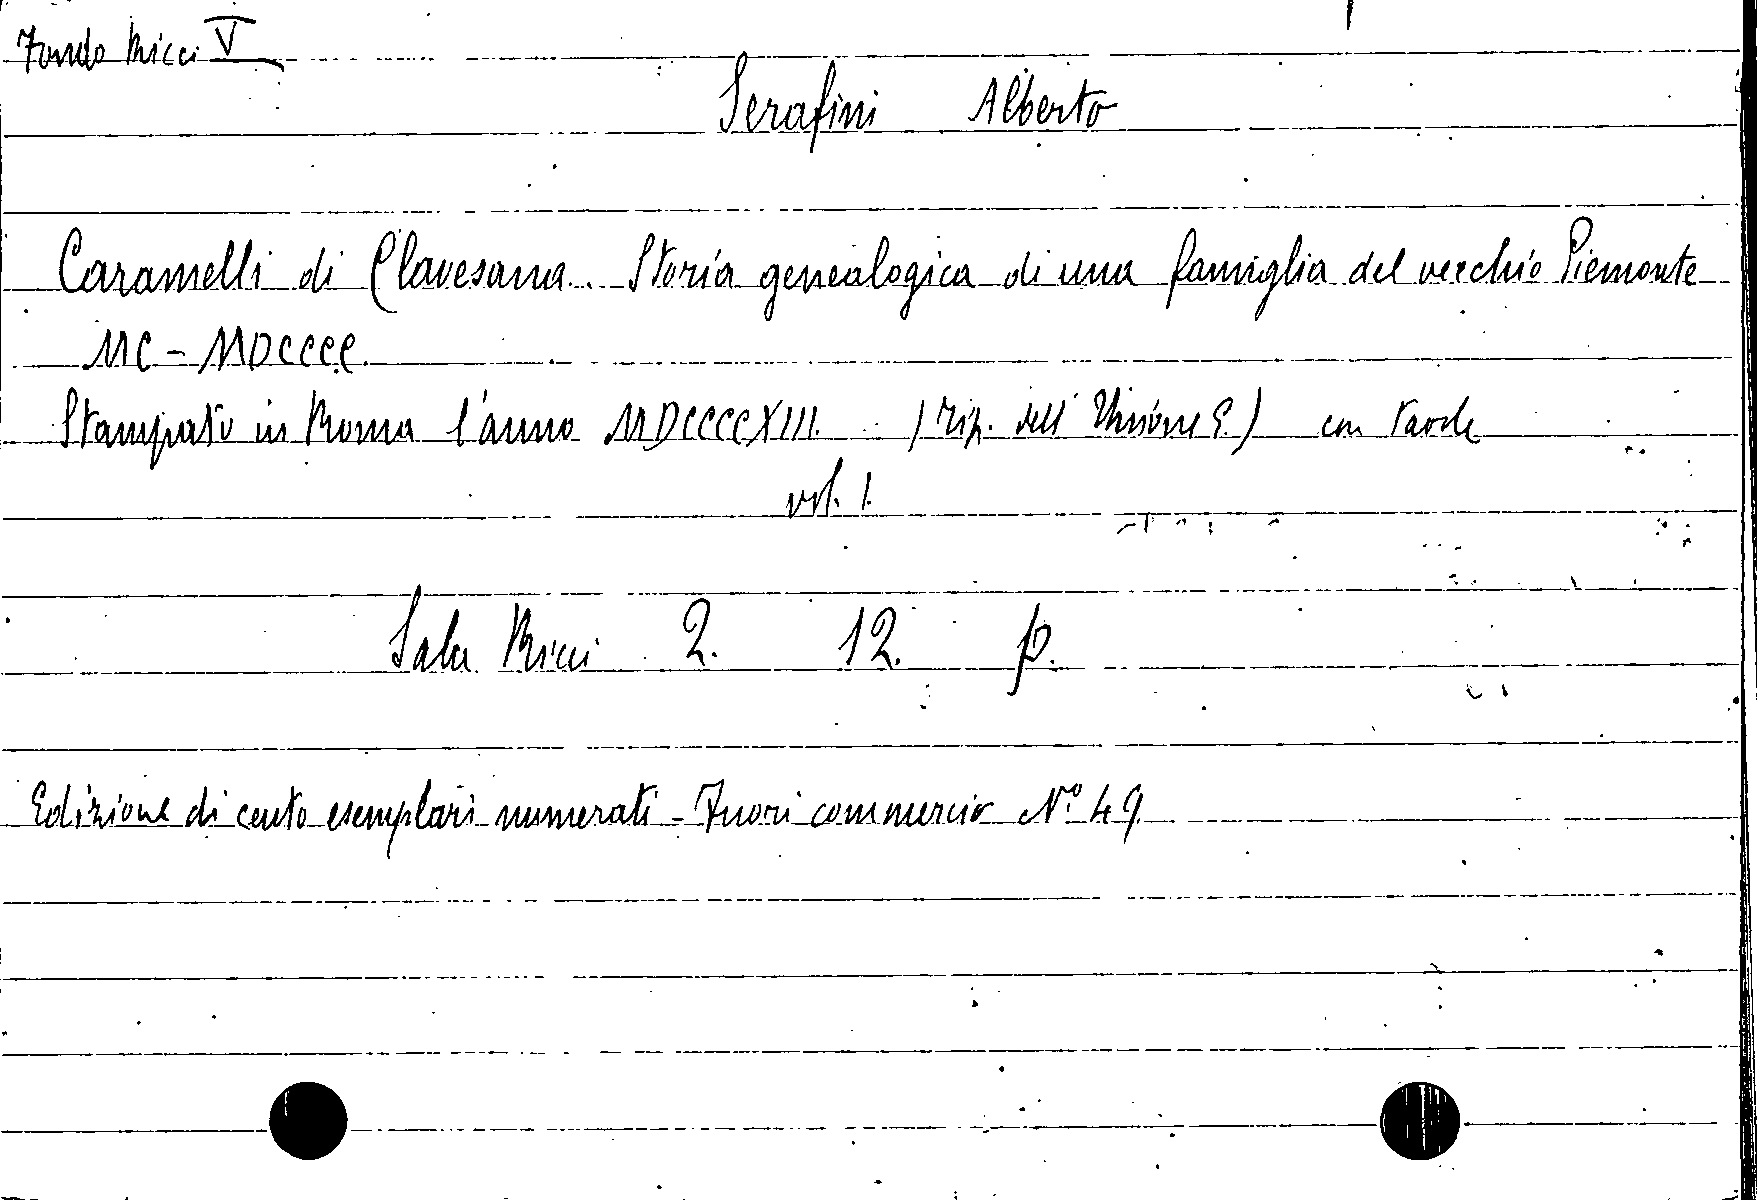 Fondo Ricci V
Serafini Alberto
Caramelli di Clavesana. Storia genealogica di una famiglia del vecchio Piemonte
MC - MDCCCC.
Stampato in Roma l'anno MDCCCCXIII. (Tip. dell' Unione E.) con tavole
vol. 1.
Sala Ricci 2. 12. p.
Edizione di cento esemplari numerati - Fuori commercio N.° 49